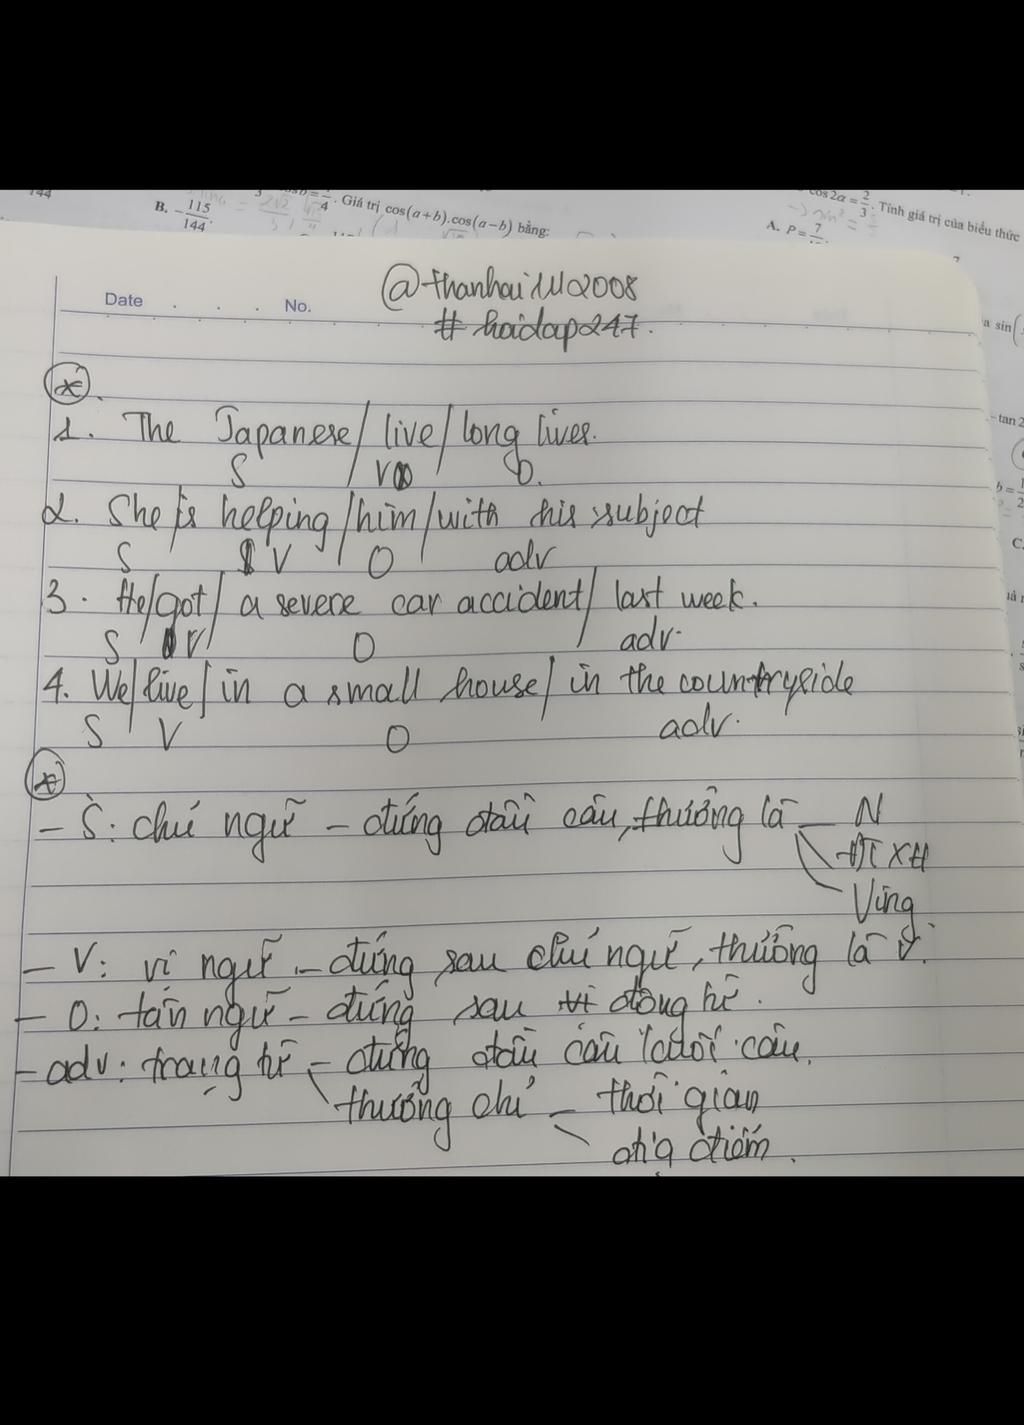 144
B. -115/144.
b = /4. Giá trị cos(a+b).cos(a-b) bằng:
cos2a = 2/3. Tính giá trị của biểu thức
A. P = 7/
a sin(
-tan 2
b =
C.
Date . . . No.
@thanhai1112008
# hoidap247.
*.
1. The Japanese / live / long lives.
S V O.
2. She / is helping / him / with his subject
S V O adv
3. He / got / a severe car accident / last week.
S V O adv.
4. We / live / in a small house / in the countryside
S V O adv.
*
- S: chủ ngữ - đứng đầu câu, thường là - N
ĐTXH
Ving
- V: vị ngữ - đứng sau chủ ngữ, thường là V.
- O: tân ngữ - đứng sau động từ.
- adv: trạng từ - đứng đầu câu / cuối câu.
thường chỉ - thời gian
địa điểm.